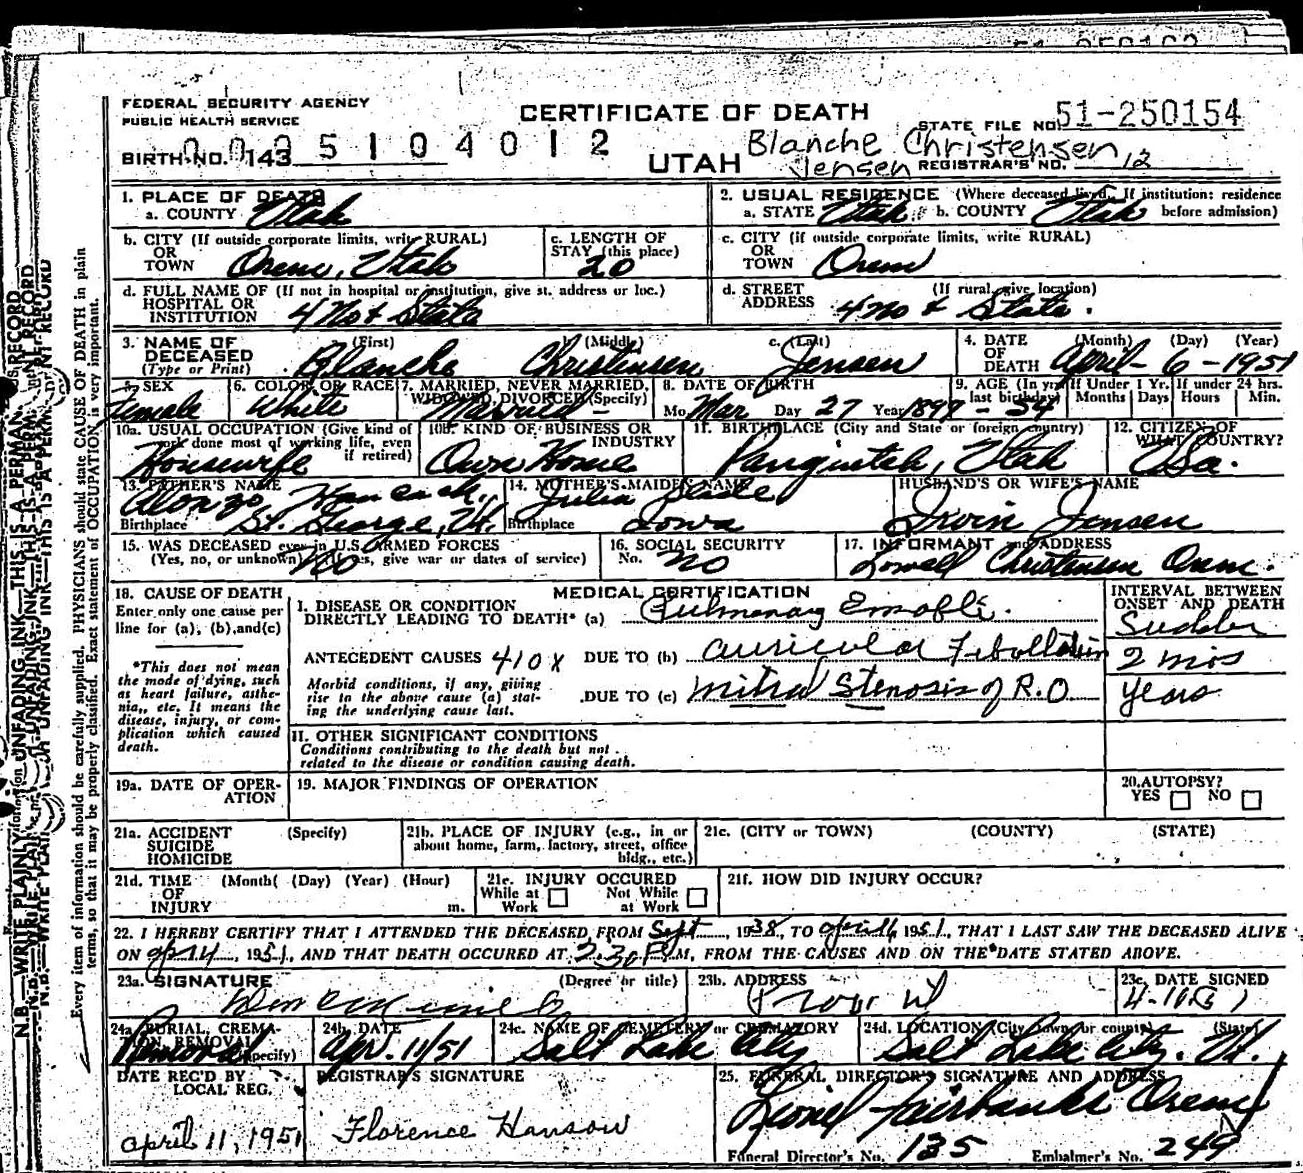 FEDERAL SECURITY AGENCY
PUBLIC HEALTH SERVICE
CERTIFICATE OF DEATH
STATE FILE NO. 51-250154
BIRTH NO. 143
0035104012
UTAH
Blanche Christensen
Jensen
REGISTRAR'S NO. 12
1. PLACE OF DEATH
a. COUNTY Utah
2. USUAL RESIDENCE (Where deceased lived. If institution: residence
a. STATE Utah b. COUNTY Utah before admission)
b. CITY (If outside corporate limits, write RURAL)
OR
TOWN Orem, Utah
c. LENGTH OF
STAY (this place)
20
c. CITY (if outside corporate limits, write RURAL)
OR
TOWN Orem
d. FULL NAME OF (If not in hospital or institution, give st. address or loc.)
HOSPITAL OR
INSTITUTION 4 No & State
d. STREET (If rural, give location)
ADDRESS 4 No & State.
3. NAME OF
DECEASED
(Type or Print)
(First) b. (Middle) c. (Last)
Blanche Christensen Jensen
4. DATE (Month) (Day) (Year)
OF
DEATH April - 6 - 1951
5. SEX
female
6. COLOR OR RACE
White
7. MARRIED, NEVER MARRIED,
WIDOWED, DIVORCED (Specify)
Married -
8. DATE OF BIRTH
Mo. Mar Day 27 Year 1897
9. AGE (In yrs last birthday) - 54
If Under 1 Yr. Months Days
If under 24 hrs. Hours Min.
10a. USUAL OCCUPATION (Give kind of
work done most of working life, even
if retired)
Housewife
10b. KIND OF BUSINESS OR
INDUSTRY
Own Home
11. BIRTHPLACE (City and State or foreign country)
Panguitch, Utah
12. CITIZEN OF
WHAT COUNTRY?
USa.
13. FATHER'S NAME
Alonzo Hancock,
Birthplace St. George, Ut.
14. MOTHER'S MAIDEN NAME
Julia Slade
Birthplace Iowa
HUSBAND'S OR WIFE'S NAME
Irvin Jensen
15. WAS DECEASED ever in U.S. ARMED FORCES
(Yes, no, or unknown) (If yes, give war or dates of service)
No
16. SOCIAL SECURITY
No. No
17. INFORMANT and ADDRESS
Lowell Christensen Orem.
18. CAUSE OF DEATH
Enter only one cause per
line for (a), (b), and (c)
*This does not mean
the mode of dying, such
as heart failure, asthe-
nia, etc. It means the
disease, injury, or com-
plication which caused
death.
MEDICAL CERTIFICATION
INTERVAL BETWEEN
ONSET AND DEATH
I. DISEASE OR CONDITION
DIRECTLY LEADING TO DEATH* (a) Pulmonary
ANTECEDENT CAUSES 410X DUE TO (b) auricular
2 mos
Morbid conditions, if any, giving
rise to the above cause (a) stat-
ing the underlying cause last.
DUE TO (c) Mitral Stenosis of R.O
years
II. OTHER SIGNIFICANT CONDITIONS
Conditions contributing to the death but not
related to the disease or condition causing death.
19a. DATE OF OPER-
ATION
19. MAJOR FINDINGS OF OPERATION
20. AUTOPSY?
YES NO
21a. ACCIDENT (Specify)
SUICIDE
HOMICIDE
21b. PLACE OF INJURY (e.g., in or
about home, farm, factory, street, office
bldg., etc.)
21c. (CITY or TOWN) (COUNTY) (STATE)
21d. TIME (Month( (Day) (Year) (Hour)
OF
INJURY m.
21e. INJURY OCCURED
While at Work Not While at Work
21f. HOW DID INJURY OCCUR?
22. I HEREBY CERTIFY THAT I ATTENDED THE DECEASED FROM Sept, 1938, TO April 6, 1951, THAT I LAST SAW THE DECEASED ALIVE
ON 1951, AND THAT DEATH OCCURED AT 2:30 P.M, FROM THE CAUSES AND ON THE DATE STATED ABOVE.
23a. SIGNATURE (Degree or title)
23b. ADDRESS
23c. DATE SIGNED
24a. BURIAL, CREMA-
TION, REMOVAL (Specify)
Removal
24b. DATE
Apr. 11/51
24c. NAME OF CEMETERY or CREMATORY
Salt Lake City
24d. LOCATION (City, town, or county) (State)
Salt Lake City. Ut.
DATE REC'D BY
LOCAL REG.
April 11, 1951
REGISTRAR'S SIGNATURE
Florence Hanson
25. FUNERAL DIRECTOR'S SIGNATURE AND ADDRESS
Lionel Fairbanks Orem
Funeral Director's No. 135 Embalmer's No. 249
Every item of information should be carefully supplied. PHYSICIANS should state CAUSE OF DEATH in plain
terms, so that it may be properly classified. Exact statement of OCCUPATION is very important.
N.B.—WRITE PLAINLY UNFADING INK—THIS IS A PERMANENT RECORD